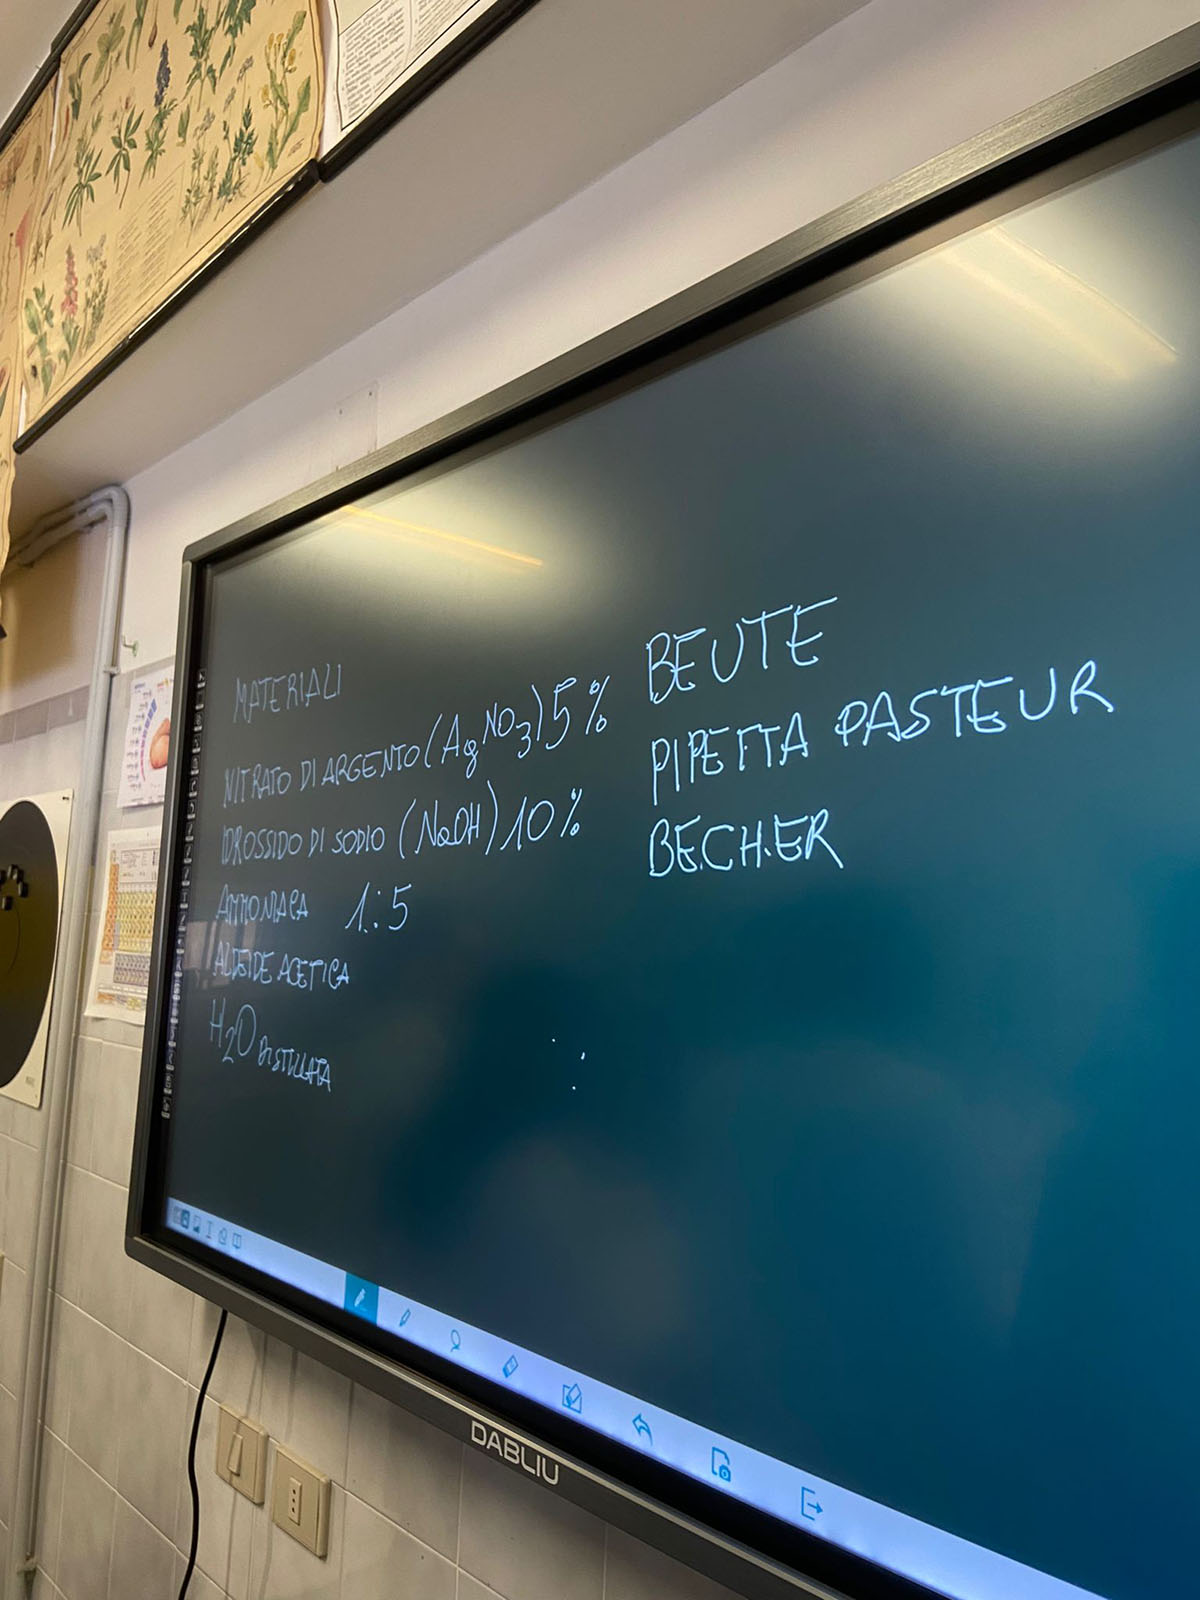 MATERIALI
NITRATO DI ARGENTO (AgNO3) 5%
IDROSSIDO DI SODIO (NaOH) 10%
AMMONIACA 1:5
ALDEIDE ACETICA
H2O DISTILLATA
BEUTE
PIPETTA PASTEUR
BECHER
DABLIU